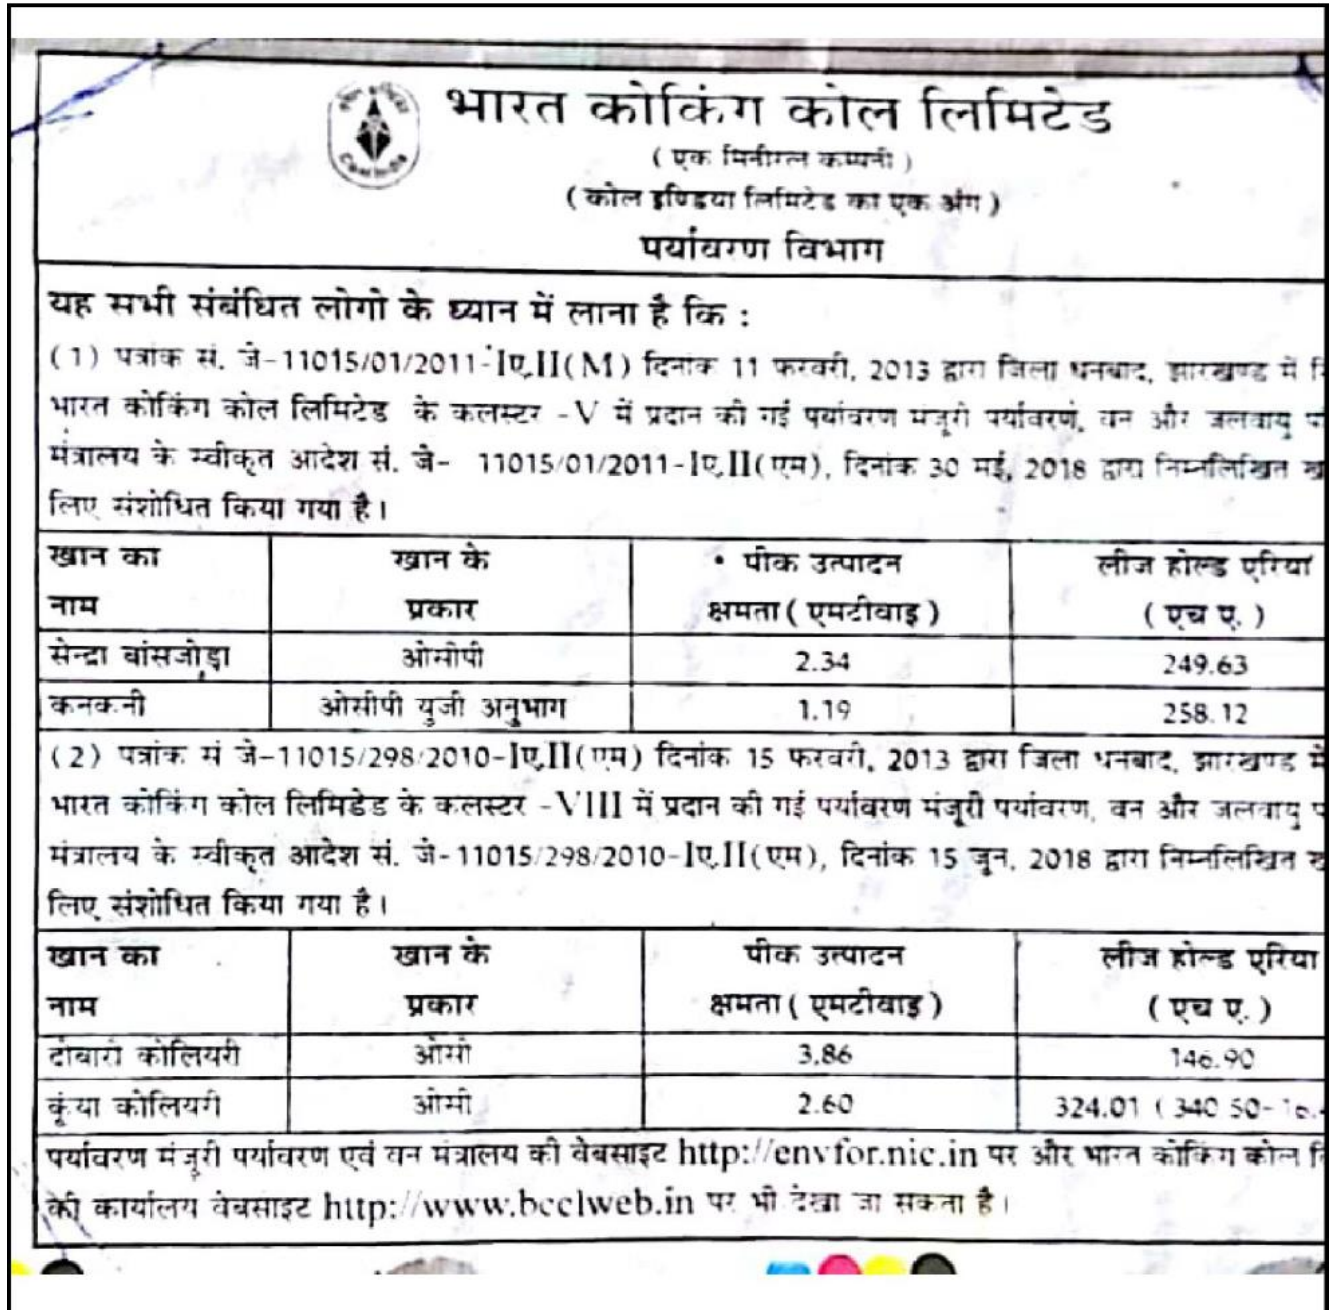 भारत कोकिंग कोल लिमिटेड
( एक मिनीरत्न कम्पनी )
( कोल इण्डिया लिमिटेड का एक अंग )
पर्यावरण विभाग
यह सभी संबंधित लोगो के ध्यान में लाना है कि :
(1) पत्रांक सं. जे-11015/01/2011-Iए.II(M) दिनांक 11 फरवरी, 2013 द्वारा जिला धनबाद, झारखण्ड में
भारत कोकिंग कोल लिमिटेड के कलस्टर -V में प्रदान की गई पर्यावरण मंजूरी पर्यावरण, वन और जलवायु
मंत्रालय के स्वीकृत आदेश सं. जे- 11015/01/2011-Iए.II(एम), दिनांक 30 मई, 2018 द्वारा निम्नलिखित
लिए संशोधित किया गया है।
खान का नाम खान के प्रकार पीक उत्पादन क्षमता ( एमटीवाइ ) लीज होल्ड एरिया ( एच ए. )
सेन्द्रा बांसजोड़ा ओसीपी 2.34 249.63
कनकनी ओसीपी युजी अनुभाग 1.19 258.12
(2) पत्रांक सं जे-11015/298/2010-Iए.II(एम) दिनांक 15 फरवरी, 2013 द्वारा जिला धनबाद, झारखण्ड में
भारत कोकिंग कोल लिमिडेड के कलस्टर -VIII में प्रदान की गई पर्यावरण मंजूरी पर्यावरण, वन और जलवायु
मंत्रालय के स्वीकृत आदेश सं. जे-11015/298/2010-Iए.II(एम), दिनांक 15 जून, 2018 द्वारा निम्नलिखित
लिए संशोधित किया गया है।
खान का नाम खान के प्रकार पीक उत्पादन क्षमता ( एमटीवाइ ) लीज होल्ड एरिया ( एच ए. )
दोबारी कोलियरी ओसी 3.86 146.90
कूंया कोलियरी ओसी 2.60 324.01 ( 340.50-
पर्यावरण मंजूरी पर्यावरण एवं वन मंत्रालय की वेबसाइट http://envfor.nic.in पर और भारत कोकिंग कोल
की कार्यालय वेबसाइट http://www.bcclweb.in पर भी देखा जा सकता है।